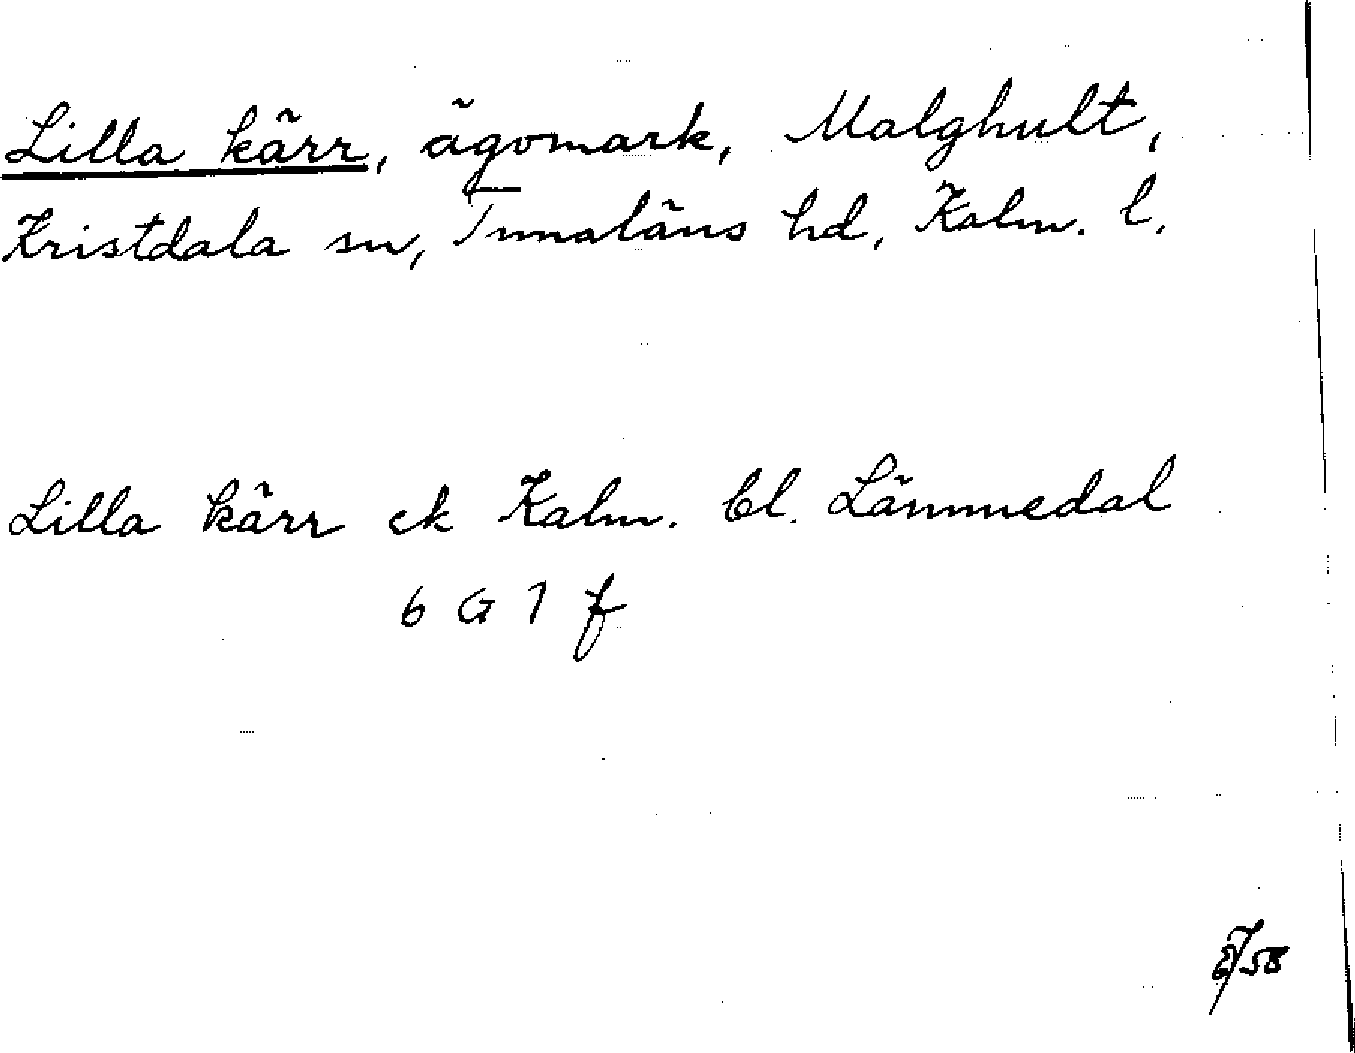 Lilla kärr, ägomark, Malghult,
Kristdala sn, Tunaläns hd, Kalm. l.
Lilla kärr ek Kalm. bl. Lämmedal
6 G 7 f